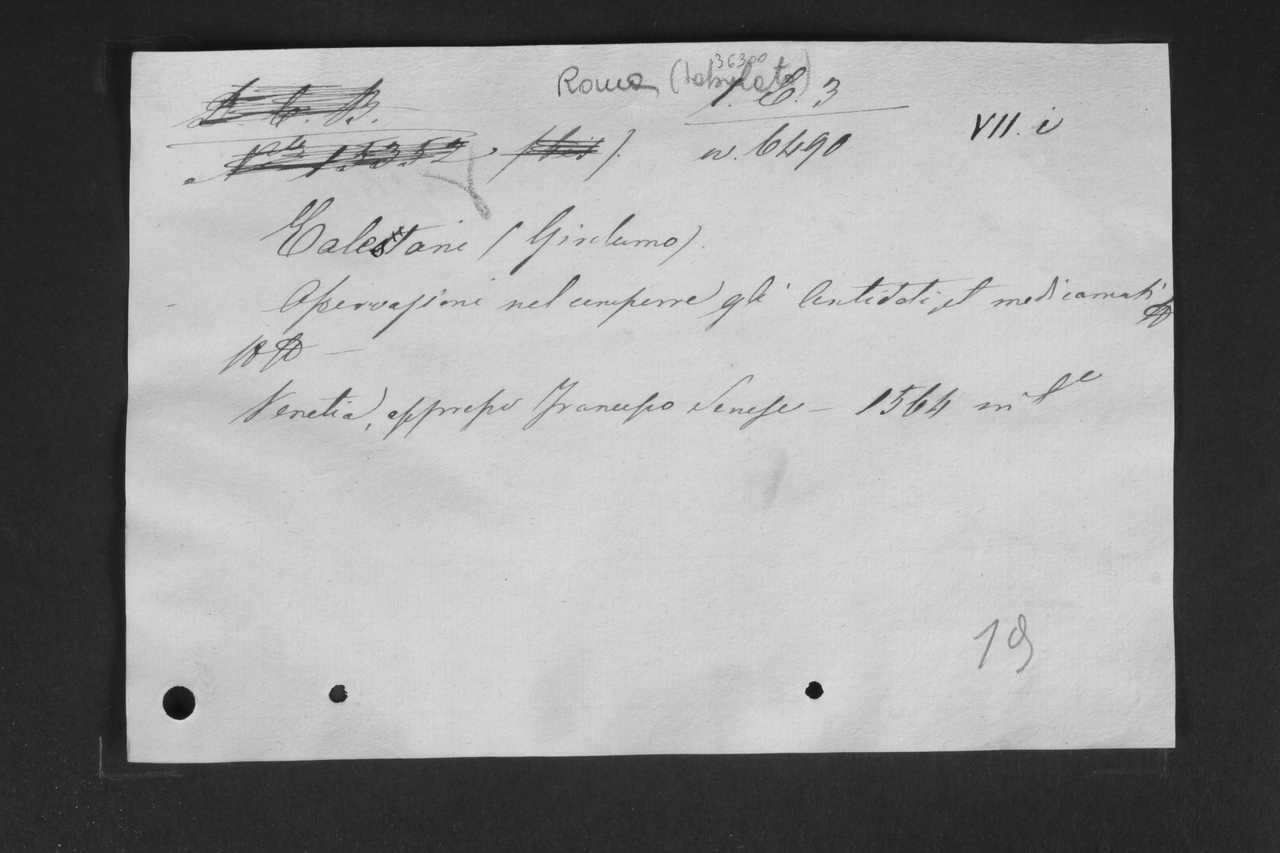 36300
Roma (tabulato)
A. C. B. 1. E. 3
VII. i
N.º 15352. (bis). n. 6490
Calestani (Girolamo).
Osservazioni nel comporre gli Antidoti, et medicamenti
Venetia, appresso Francesco Senese - 1564 in 8º
19